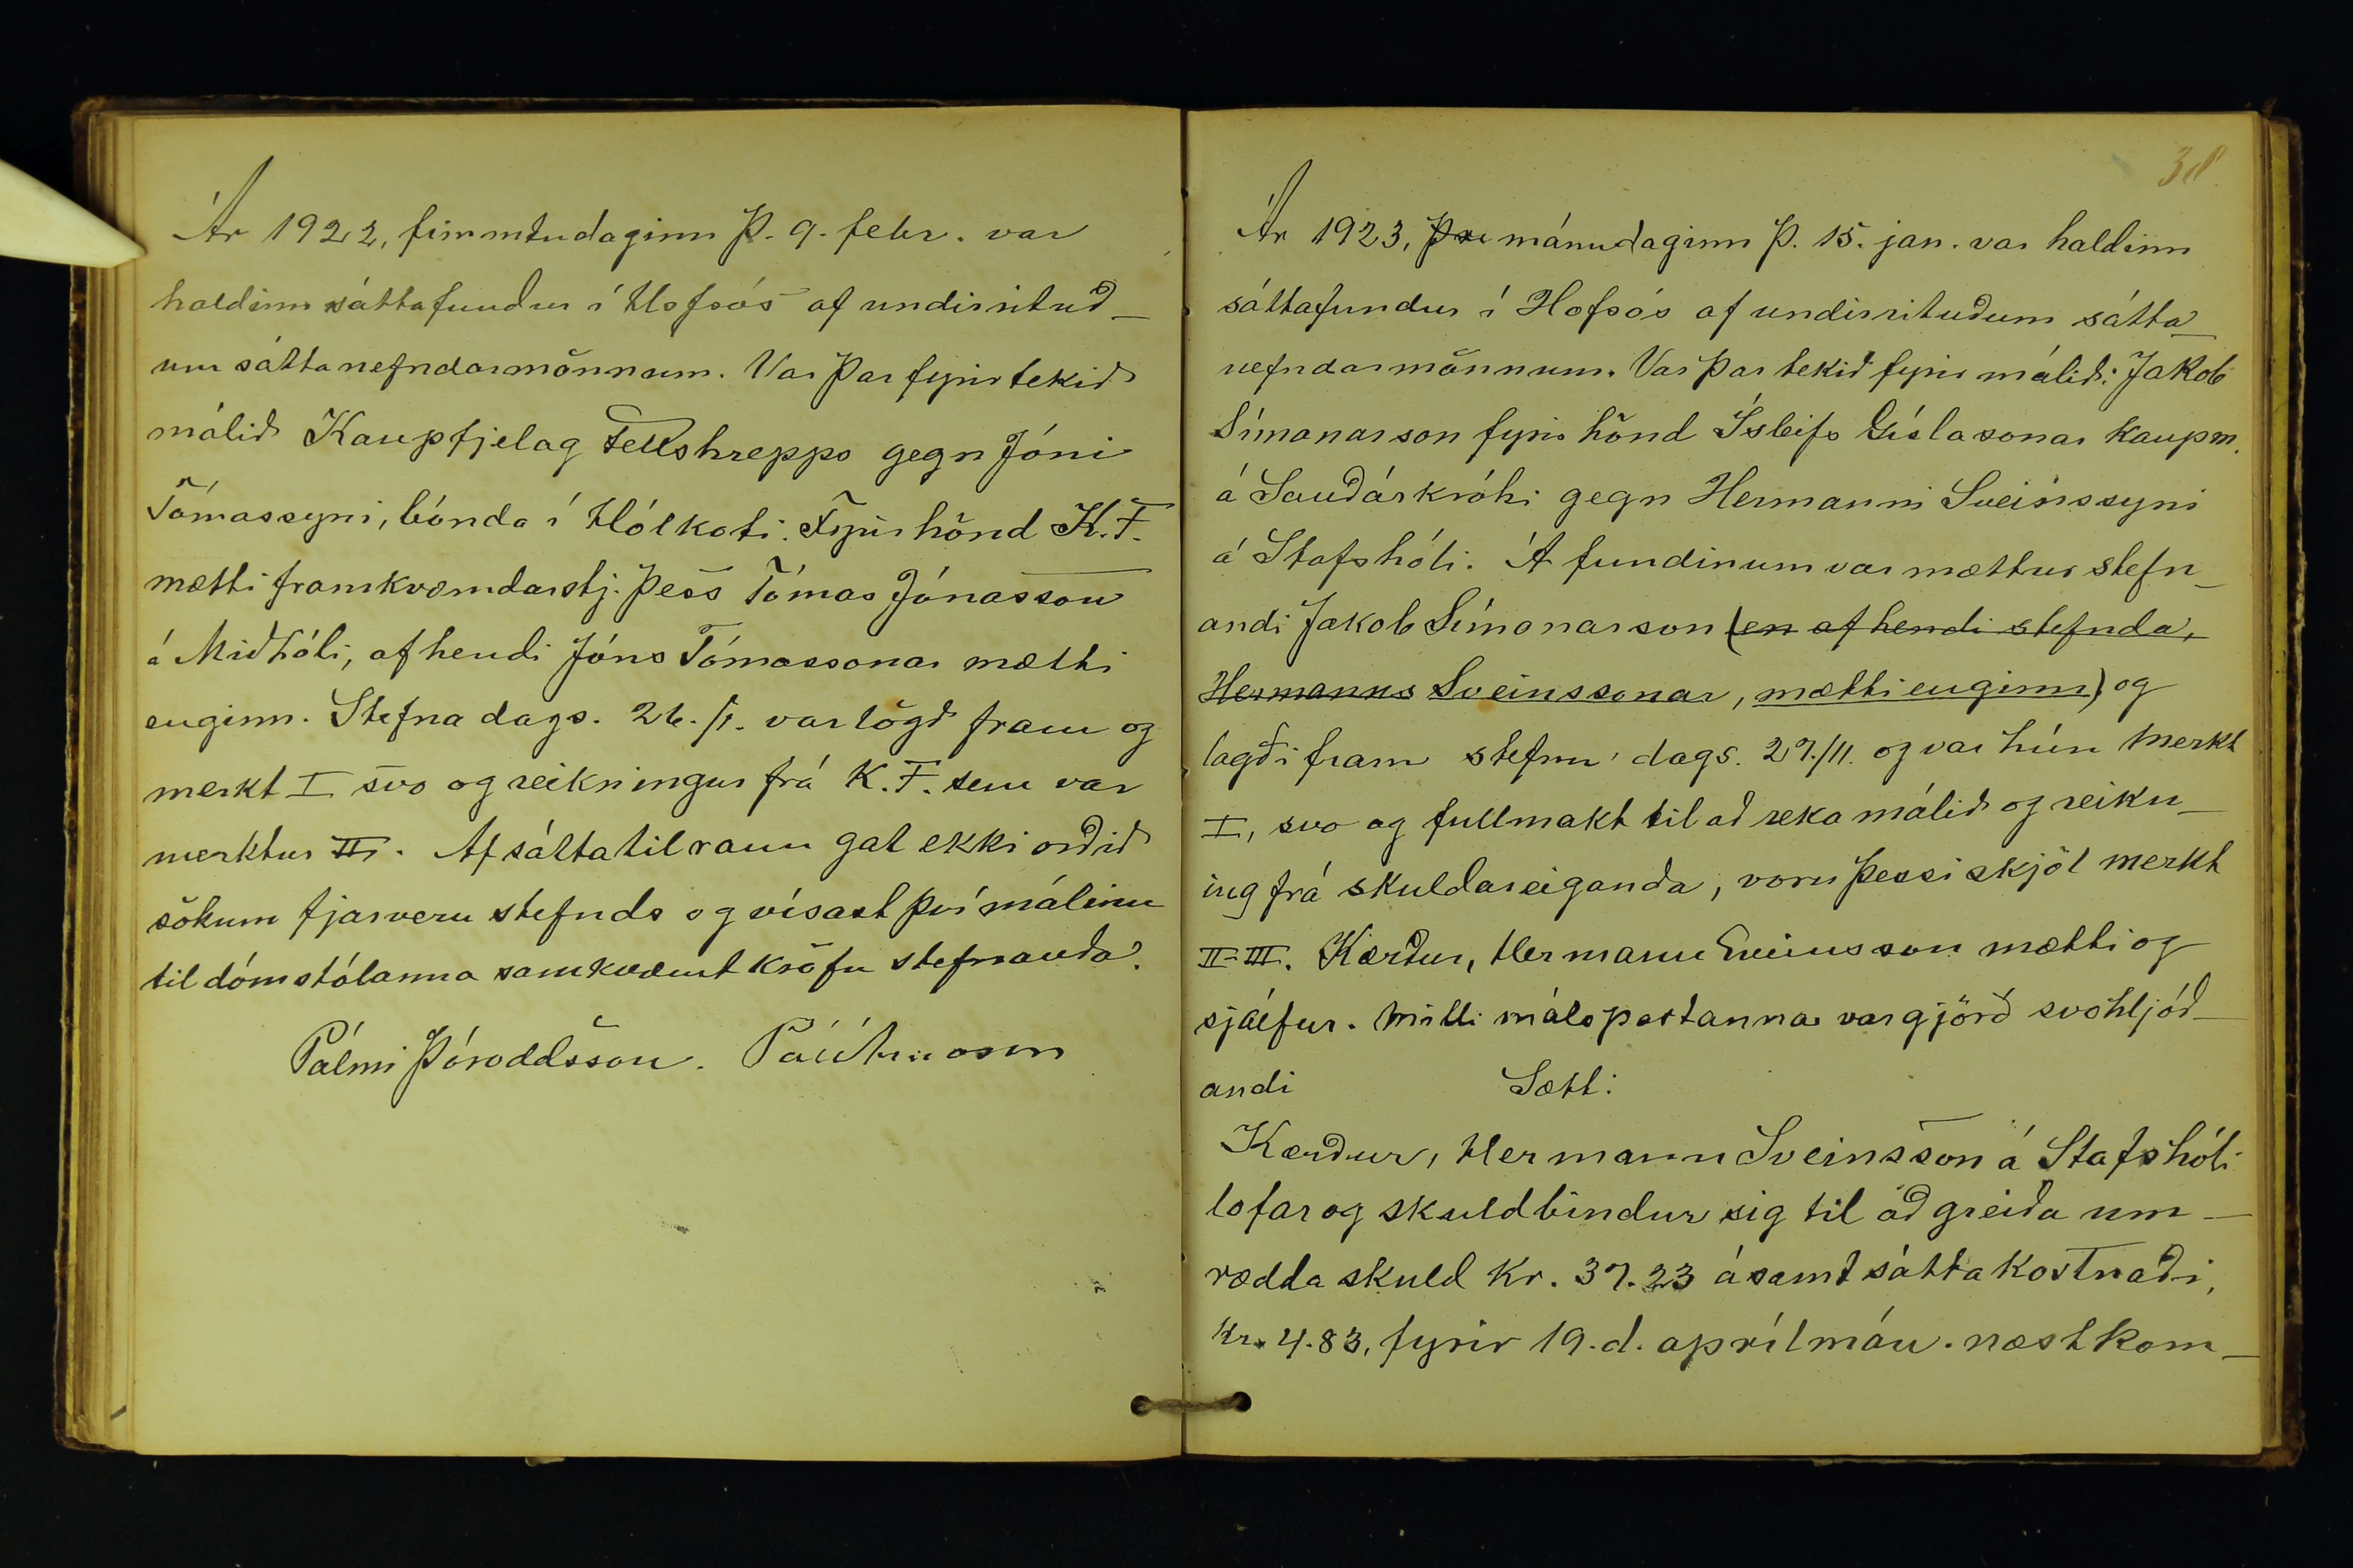 Ár 1922, fimmtudaginn þ. 9. febr. var
haldinn sáttafundur í Hofsós af undirrituð-
um sáttanefndarmönnum. Var þar fyrir tekið
málið Kaupfjelag Fellshrepps gegn Jóni
Tómassyni, bónda í Hólkoti. Fyrir hönd K.F.
mætti framkvæmdarstj. þess Tómas Jónasson
á Miðhóli, af hendi Jóns Tómassonar mætti
enginn. Stefna dags. 26./1. var lögð fram og
merkt I svo og reikningur frá K.F. sem var
merktur II. Af sáttatilraun gat ekki orðið
sökum fjarveru stefnds og vísast því málinu
til dómstólanna samkvæmt kröfu stefnanda.
Pálmi Þóroddsson.
38
Ár 1923, mánudaginn þ. 15. jan. var haldinn
sáttafundur í Hofsós af undirrituðum sátta-
nefndarmönnum. Var þar tekið fyrir málið: Jakob
Símonarson fyrir hönd Ísleifs Gíslasonar kaupm.
á Sauðárkróki gegn Hermanni Sveinssyni
á Stafshóli. Á fundinum var mættur stefn-
andi Jakob Símonarson (en af hendi stefnda,
Hermanns Sveinssonar, mætti enginn) og
lagði fram stefnu dags. 27./11. og var hún merkt
I, svo og fullmakt til að reka málið og reikn-
ing frá skuldareiganda, voru þessi skjöl merkt
II-III. Kærður, Hermann Sveinsson mætti og
sjálfur. Milli málspartanna var gjörð svohljóð-
andi Sætt:
Kærður, Hermann Sveinsson á Stafshóli
lofar og skuldbindur sig til að greiða um-
rædda skuld kr. 37.23 ásamt sáttakostnaði,
kr. 4.83, fyrir 19. d. aprílmán. næstkom-